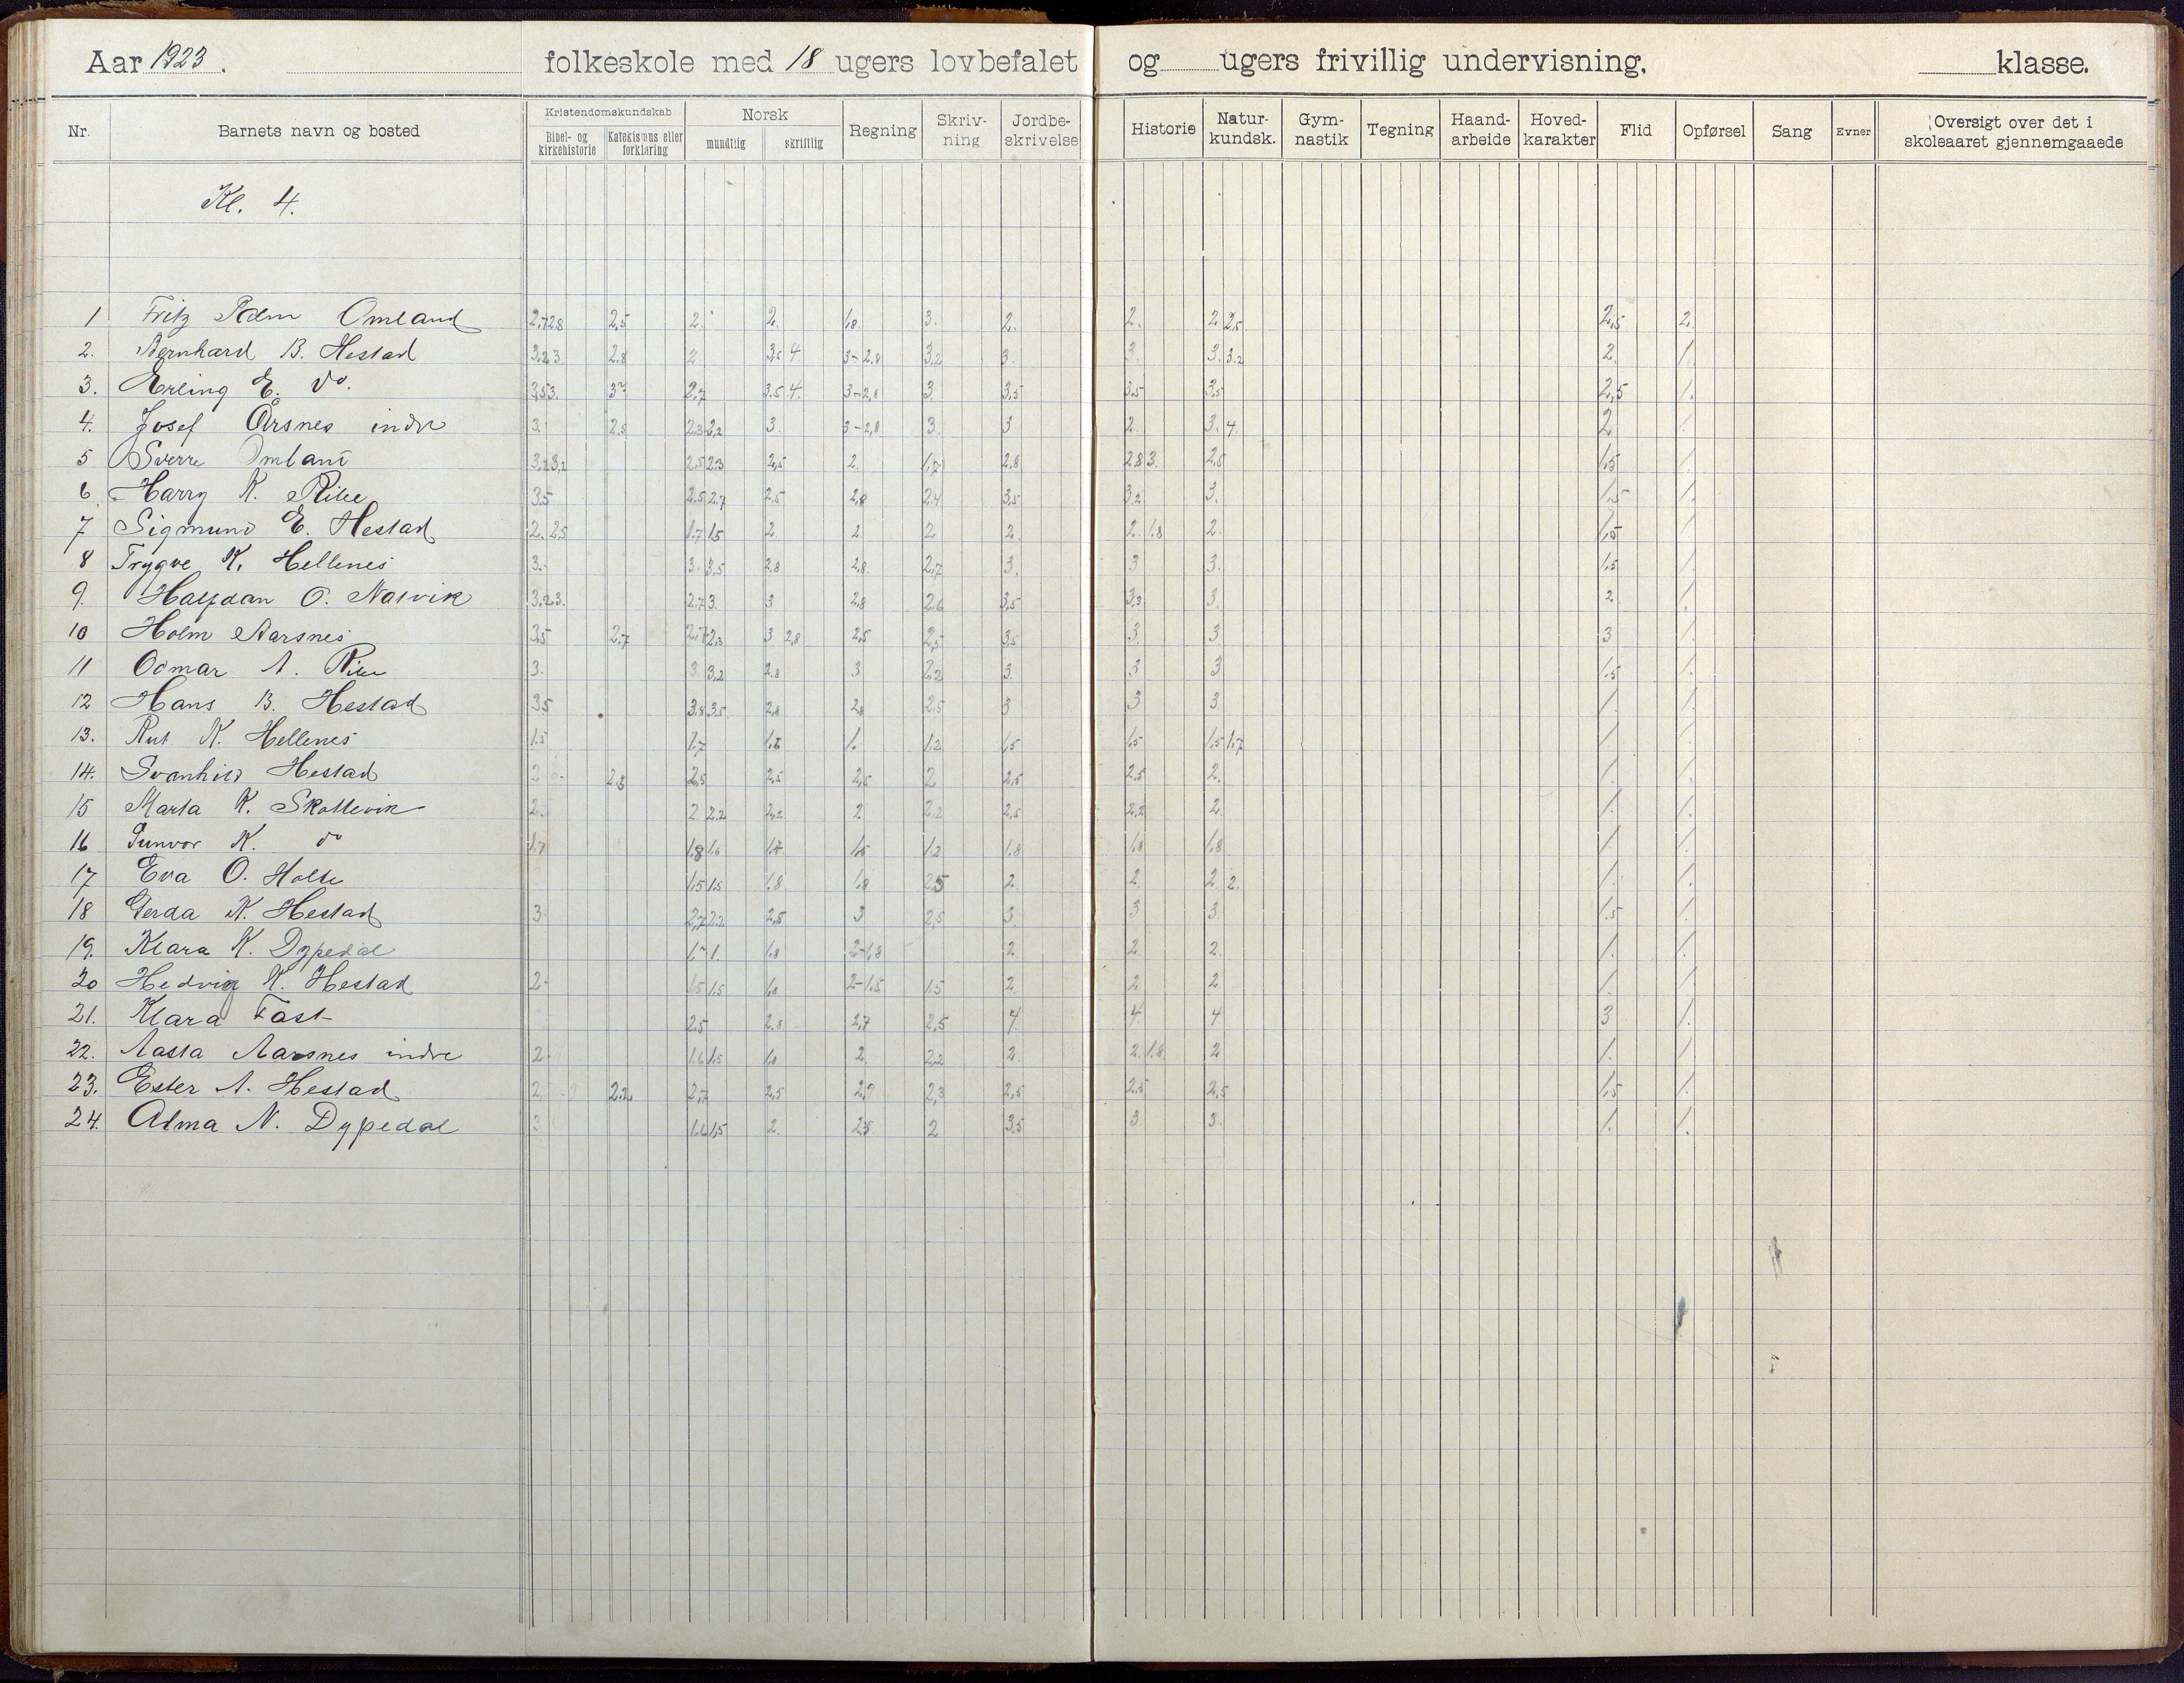 Aar 1923. folkeskole med 18 ugers lovbefalet og ugers frivillig undervisning. klasse.
Nr. Barnets navn og bosted Kristendomskundskab Bibel- og kirkehistorie Katekismus eller forklaring Norsk mundtlig skriftlig Regning Skriv-ning Jordbe-skrivelse Historie Natur-kundsk. Gym-nastik Tegning Haand-arbeide Hoved-karakter Flid Opførsel Sang Evner Oversigt over det i skoleaaret gjennemgaaede
Kl. 4.
1 Fritz Omland 2.7 2.8 2,5 2. 2. 1.8 3. 2. 2. 2 2,5. 2,5 2.
2. Bernhard B. Hestad 3.2 3. 2.8 2. 3.5 4 3-2,8 3.2 3. 3. 3. 3.2 2. 1.
3. Erling E. do. 3.5 3. 2.7 3.5 4. 3-2,8 3. 3,5 3.5 3.5 2,5 1.
4. Josef Årsnes indre 3. 2.5 2.3 2.2 3. 3-2,8 3. 3 2. 3. 4. 2 1.
5 Sverre Omland 3.2 3.2 2.5 2.3 2,5 2. 1.7 2.8 2.8 3. 2.5 1.5 1.
6 Harry K. Rike 3.5 2.5 2.7 2.5 2,8 2.4 3,5 3.2 3. 1.5 1.
7 Sigmund E. Hestad 2. 2.5 1.7 1.5 2 2 2 2. 2. 1.8 2. 1,5 1.
8 Trygve K. Hellenes 3. 3. 3,5 2.8 2.8. 2,7 3. 3 3. 1.5 1.
9. Halfdan O. Nalvik 3.2 3. 2.7 3. 3 2.8 2.6 3,5 3,3 3. 2 1.
10 Holm Aarsnes 3.5 2.7 2.7 2.3 3 2,8 2,5 2,5 3.5 3. 3 3 1.
11 Odmar A. Rike 3. 3 3,2 2.8 3 2.2 3. 3 3 1.5 1.
12 Hans B. Hestad 3.5 3.8 3.5 2.8 2.8 2.5 3 3 3. 1. 1.
13. Rut K. Hellenes 1.5 1.7 1.8 1. 1.2 1,5 1.5 1.5 1.7 1. 1.
14. Svanhild Hestad 2 2.3 2.5 2.5 2,5 2 2,5 2.5 2. 1. 1.
15 Marta K. Skottevik 2.5 2. 2.2 2.2 2 2.2 2,5 2.2 2. 1. 1.
16 Gunvor K. do 1.7 1.8 1.6 1.7 1.5 1.2 1.8 1.8 1.8 1. 1.
17 Eva O. Holte 1.5 1.5 1.8 1.8 2.5 2. 2 2 2. 1. 1.
18 Gerda K. Hestad 3. 2,7 2.2 2,5 3 2,5 3. 3 3. 1.5 1.
19. Klara K. Dypedal 1. 1.8 2-1,8 2. 2. 2. 1. 1.
20 Hedvig K. Hestad 2. 1.5 1.5 1.8 2-1.5 1.5 2. 2 2. 1. 1.
21. Klara Fast 2.5 2.8 2,7 2.5 4 4 4 3 1.
22. Aasta Aarsnes indre 2. 1.6 1.5 1.8 2. 2.2 2. 2. 1.8 2 1. 1.
23. Ester A. Hestad 2 2.2 2,7 2,5 2,7 2,3 2,5 2.5 2,5 1.5 1.
24. Alma N. Dypedal 3 1.6 1,5 2. 2.5 2 3.5 3 3. 1. 1.